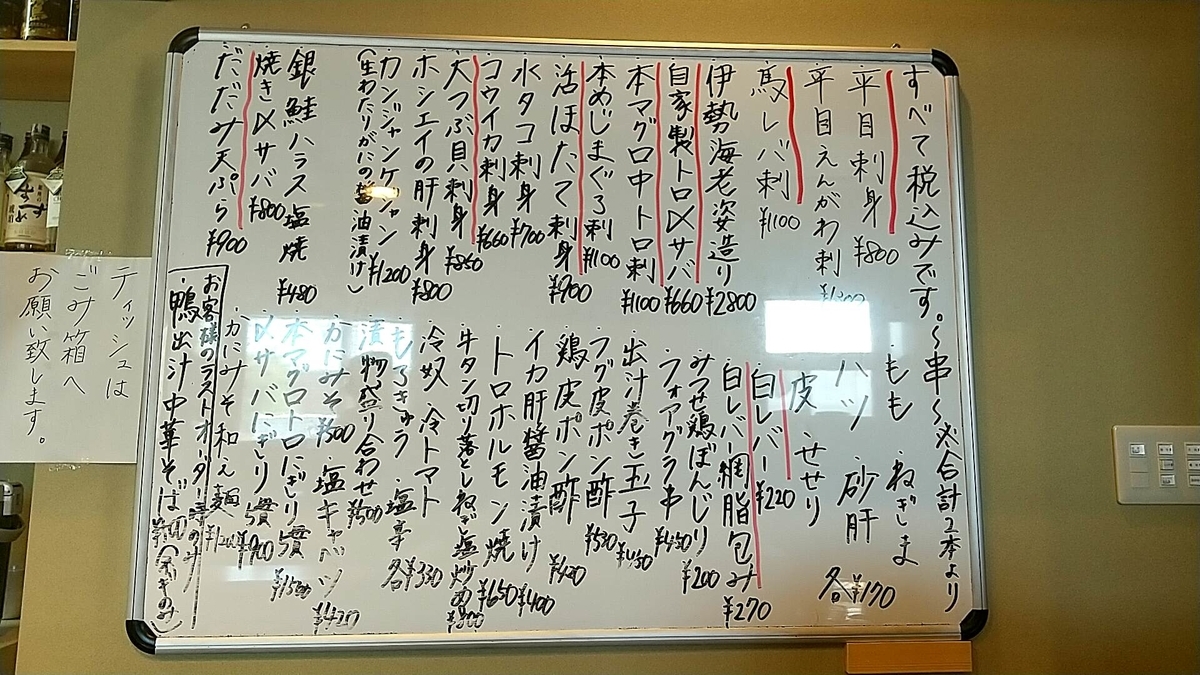 すべて税込みです。〜串〜必合計2本より
平目刺身 ¥800
平目えんがわ刺
馬レバ刺 ¥1100
伊勢海老姿造り ¥2800
自家製トロ〆サバ ¥660
本マグロ中トロ刺 ¥1100
本めじまぐろ刺 ¥1100
活ほたて刺身 ¥900
水タコ刺身 ¥700
コウイカ刺身 ¥660
大つぶ貝刺身 ¥860
ホシエイの肝刺身 ¥800
カンジャンケジャン ¥1200
(生わたりがにの醤油漬け)
銀鮭ハラス塩焼 ¥480
焼き〆サバ ¥800
だだみ天ぷら ¥900
もも ねぎま
ハツ 砂肝 各¥170
皮 せせり
白レバー ¥220
白レバー網脂包み ¥270
みつせ鶏ぼんじり ¥200
フォアグラ串 ¥450
出汁巻き玉子 ¥450
フグ皮ポン酢 ¥530
鶏皮ポン酢
イカ肝醤油漬け ¥400
トロホルモン焼 ¥650
牛タン切り落としねぎ塩炒め
冷奴 冷トマト
もろきゅう 塩辛 各¥330
漬物盛り合わせ ¥500
かにみそ ¥500 塩キャベツ
本マグロトロにぎり
〆サバにぎり
かにみそ和え麺
お客様のラストオーダー時のみ
鴨出汁中華そば
ティッシュは
ごみ箱へ
お願い致します。